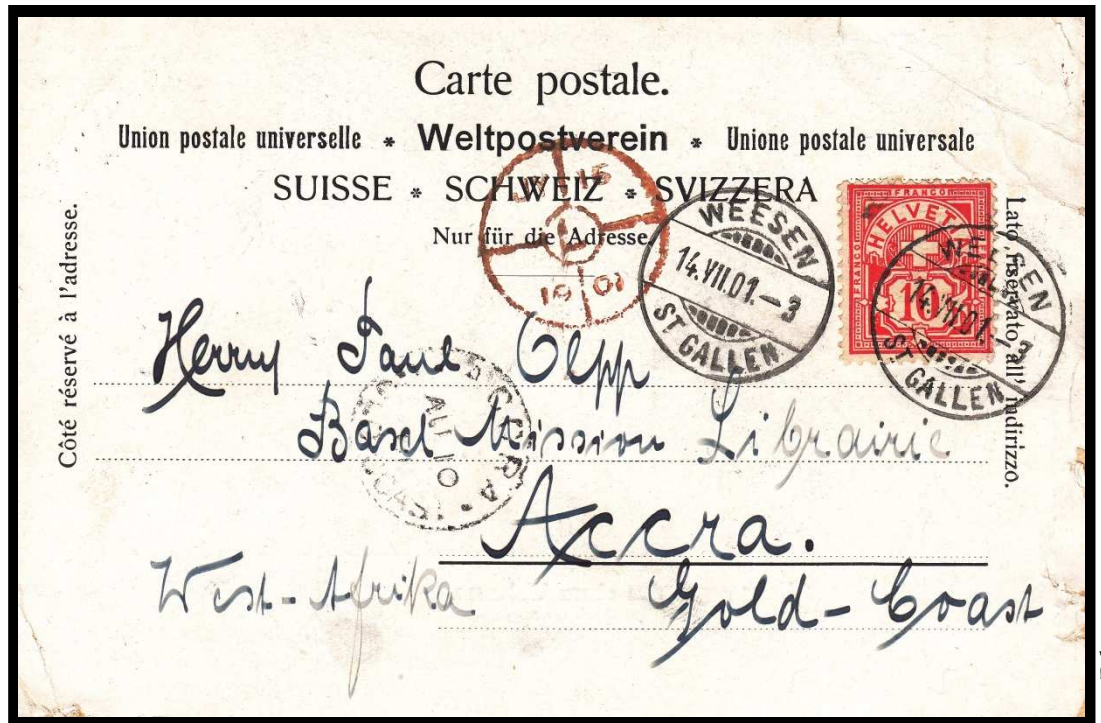 Carte postale.
Union postale universelle * Weltpostverein * Unione postale universale
SUISSE * SCHWEIZ * SVIZZERA
Nur für die Adresse.
Côté réservé à l'adresse.
Lato riservato all' indirizzo.
15
19 01
WEESEN
14.VII.01.-3
ST GALLEN
FRANCO
HELVETIA
10
WEESEN
14.VII.01.-3
ST GALLEN
Herrn Paul Olpp
Basel Mission Librairie
ACCRA
AU 10
Accra.
West-Afrika Gold-Coast